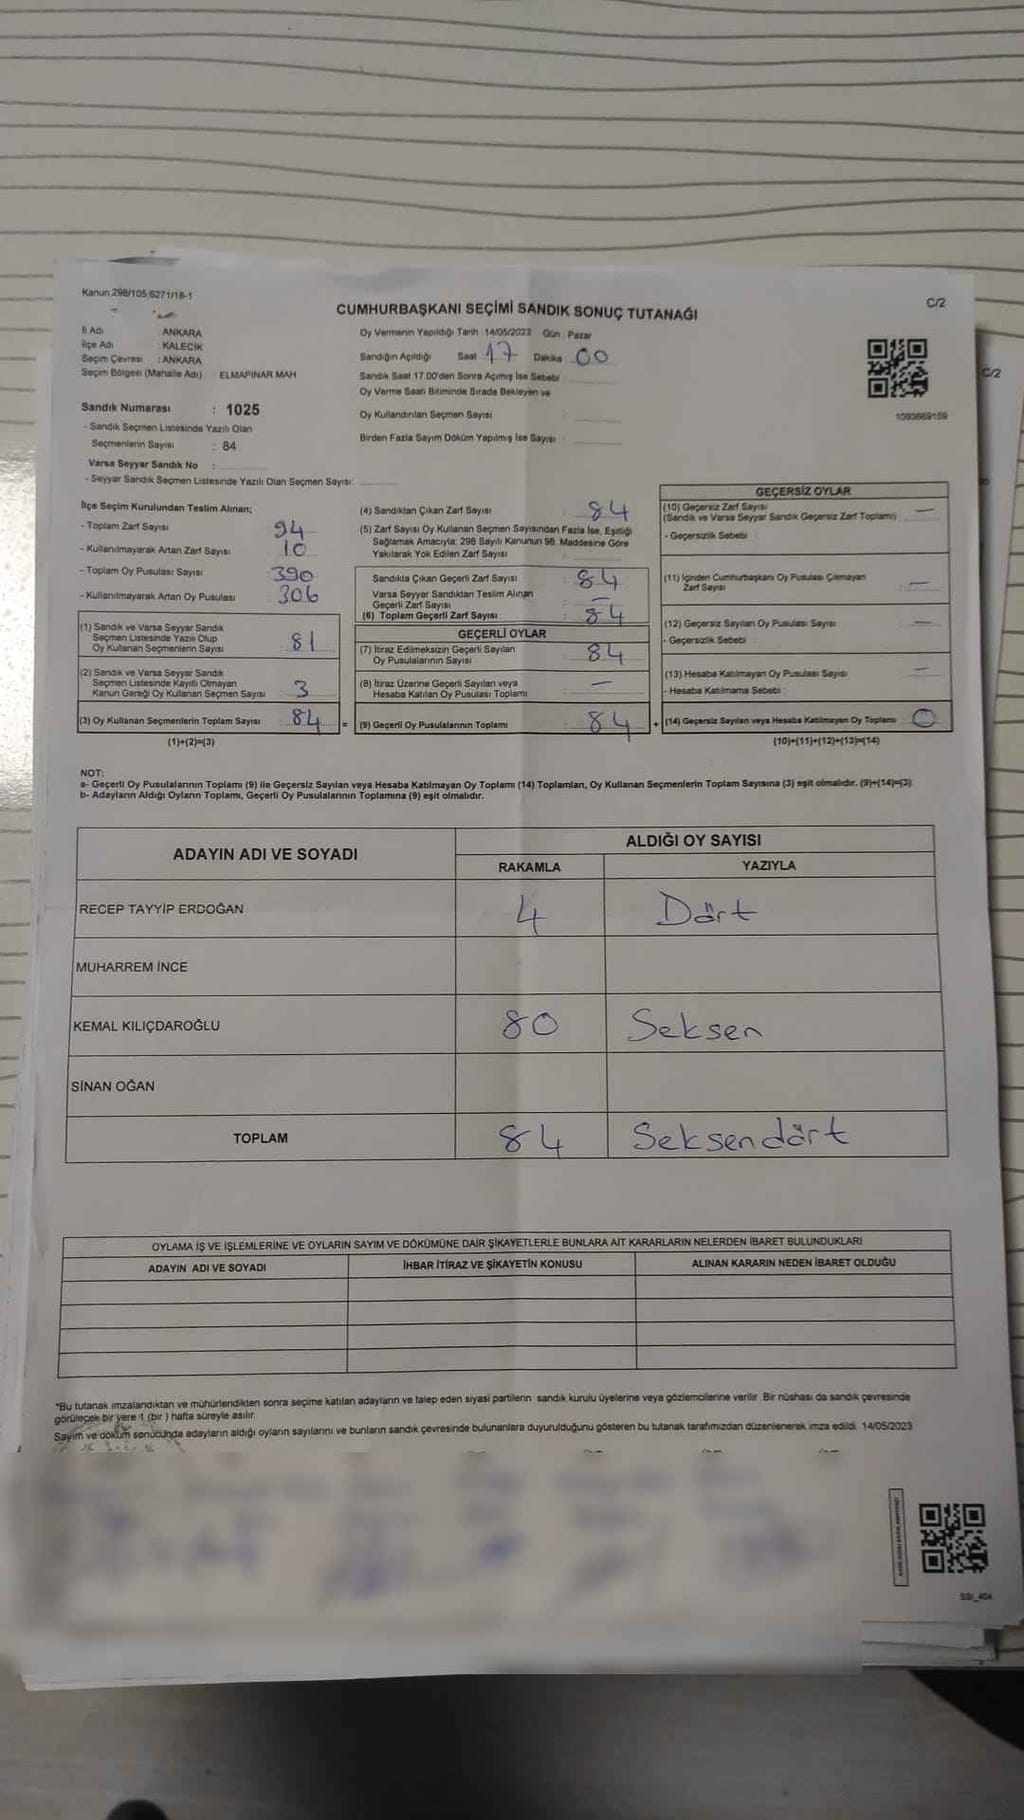 Kanun:298/105,6271/18-1
C/2
CUMHURBAŞKANI SEÇİMİ SANDIK SONUÇ TUTANAĞI
İl Adı : ANKARA
İlçe Adı : KALECİK
Seçim Çevresi : ANKARA
Seçim Bölgesi (Mahalle Adı) : ELMAPINAR MAH
Oy Vermenin Yapıldığı Tarih 14/05/2023 Gün : Pazar
Sandığın Açıldığı Saat 17 Dakika 00
Sandık Saat 17:00'den Sonra Açılmış İse Sebebi
Oy Verme Saati Bitiminde Sırada Bekleyen ve
Oy Kullandırılan Seçmen Sayısı :
Birden Fazla Sayım Döküm Yapılmış İse Sayısı :
1093669159
C/2
Sandık Numarası : 1025
- Sandık Seçmen Listesinde Yazılı Olan
Seçmenlerin Sayısı : 84
Varsa Seyyar Sandık No :
- Seyyar Sandık Seçmen Listesinde Yazılı Olan Seçmen Sayısı:
İlçe Seçim Kurulundan Teslim Alınan;
- Toplam Zarf Sayısı 94
- Kullanılmayarak Artan Zarf Sayısı 10
- Toplam Oy Pusulası Sayısı 390
- Kullanılmayarak Artan Oy Pusulası 306
(1) Sandık ve Varsa Seyyar Sandık
Seçmen Listesinde Yazılı Olup
Oy Kullanan Seçmenlerin Sayısı : 81
(2) Sandık ve Varsa Seyyar Sandık
Seçmen Listesinde Kayıtlı Olmayan
Kanun Gereği Oy Kullanan Seçmen Sayısı : 3
(3) Oy Kullanan Seçmenlerin Toplam Sayısı : 84 =
(1)+(2)=(3)
(4) Sandıktan Çıkan Zarf Sayısı : 84
(5) Zarf Sayısı Oy Kullanan Seçmen Sayısından Fazla İse, Eşitliği
Sağlamak Amacıyla; 298 Sayılı Kanunun 98. Maddesine Göre
Yakılarak Yok Edilen Zarf Sayısı :
Sandıkta Çıkan Geçerli Zarf Sayısı : 84
Varsa Seyyar Sandıktan Teslim Alınan
Geçerli Zarf Sayısı : –
(6) Toplam Geçerli Zarf Sayısı : 84
GEÇERLİ OYLAR
(7) İtiraz Edilmeksizin Geçerli Sayılan
Oy Pusulalarının Sayısı : 84
(8) İtiraz Üzerine Geçerli Sayılan veya
Hesaba Katılan Oy Pusulası Toplamı : –
(9) Geçerli Oy Pusulalarının Toplamı : 84 +
GEÇERSİZ OYLAR
(10) Geçersiz Zarf Sayısı
(Sandık ve Varsa Seyyar Sandık Geçersiz Zarf Toplamı) : –
- Geçersizlik Sebebi :
(11) İçinden Cumhurbaşkanı Oy Pusulası Çıkmayan
Zarf Sayısı : –
(12) Geçersiz Sayılan Oy Pusulası Sayısı : –
- Geçersizlik Sebebi :
(13) Hesaba Katılmayan Oy Pusulası Sayısı : –
- Hesaba Katılmama Sebebi :
(14) Geçersiz Sayılan veya Hesaba Katılmayan Oy Toplamı : 0
(10)+(11)+(12)+(13)=(14)
NOT:
a- Geçerli Oy Pusulalarının Toplamı (9) ile Geçersiz Sayılan veya Hesaba Katılmayan Oy Toplamı (14) Toplamları, Oy Kullanan Seçmenlerin Toplam Sayısına (3) eşit olmalıdır. (9)+(14)=(3)
b- Adayların Aldığı Oyların Toplamı, Geçerli Oy Pusulalarının Toplamına (9) eşit olmalıdır.
ADAYIN ADI VE SOYADI
ALDIĞI OY SAYISI
RAKAMLA YAZIYLA
RECEP TAYYİP ERDOĞAN 4 Dört
MUHARREM İNCE
KEMAL KILIÇDAROĞLU 80 Seksen
SİNAN OĞAN
TOPLAM 84 Seksendört
OYLAMA İŞ VE İŞLEMLERİNE VE OYLARIN SAYIM VE DÖKÜMÜNE DAİR ŞİKAYETLERLE BUNLARA AİT KARARLARIN NELERDEN İBARET BULUNDUKLARI
ADAYIN ADI VE SOYADI İHBAR İTİRAZ VE ŞİKAYETİN KONUSU ALINAN KARARIN NEDEN İBARET OLDUĞU
*Bu tutanak imzalandıktan ve mühürlendikten sonra seçime katılan adayların ve talep eden siyasi partilerin sandık kurulu üyelerine veya gözlemcilerine verilir. Bir nüshası da sandık çevresinde
görülecek bir yere 1 (bir) hafta süreyle asılır.
Sayım ve döküm sonucunda adayların aldığı oyların sayılarını ve bunların sandık çevresinde bulunanlara duyurulduğunu gösteren bu tutanak tarafımızdan düzenlenerek imza edildi. 14/05/2023
SSI_404